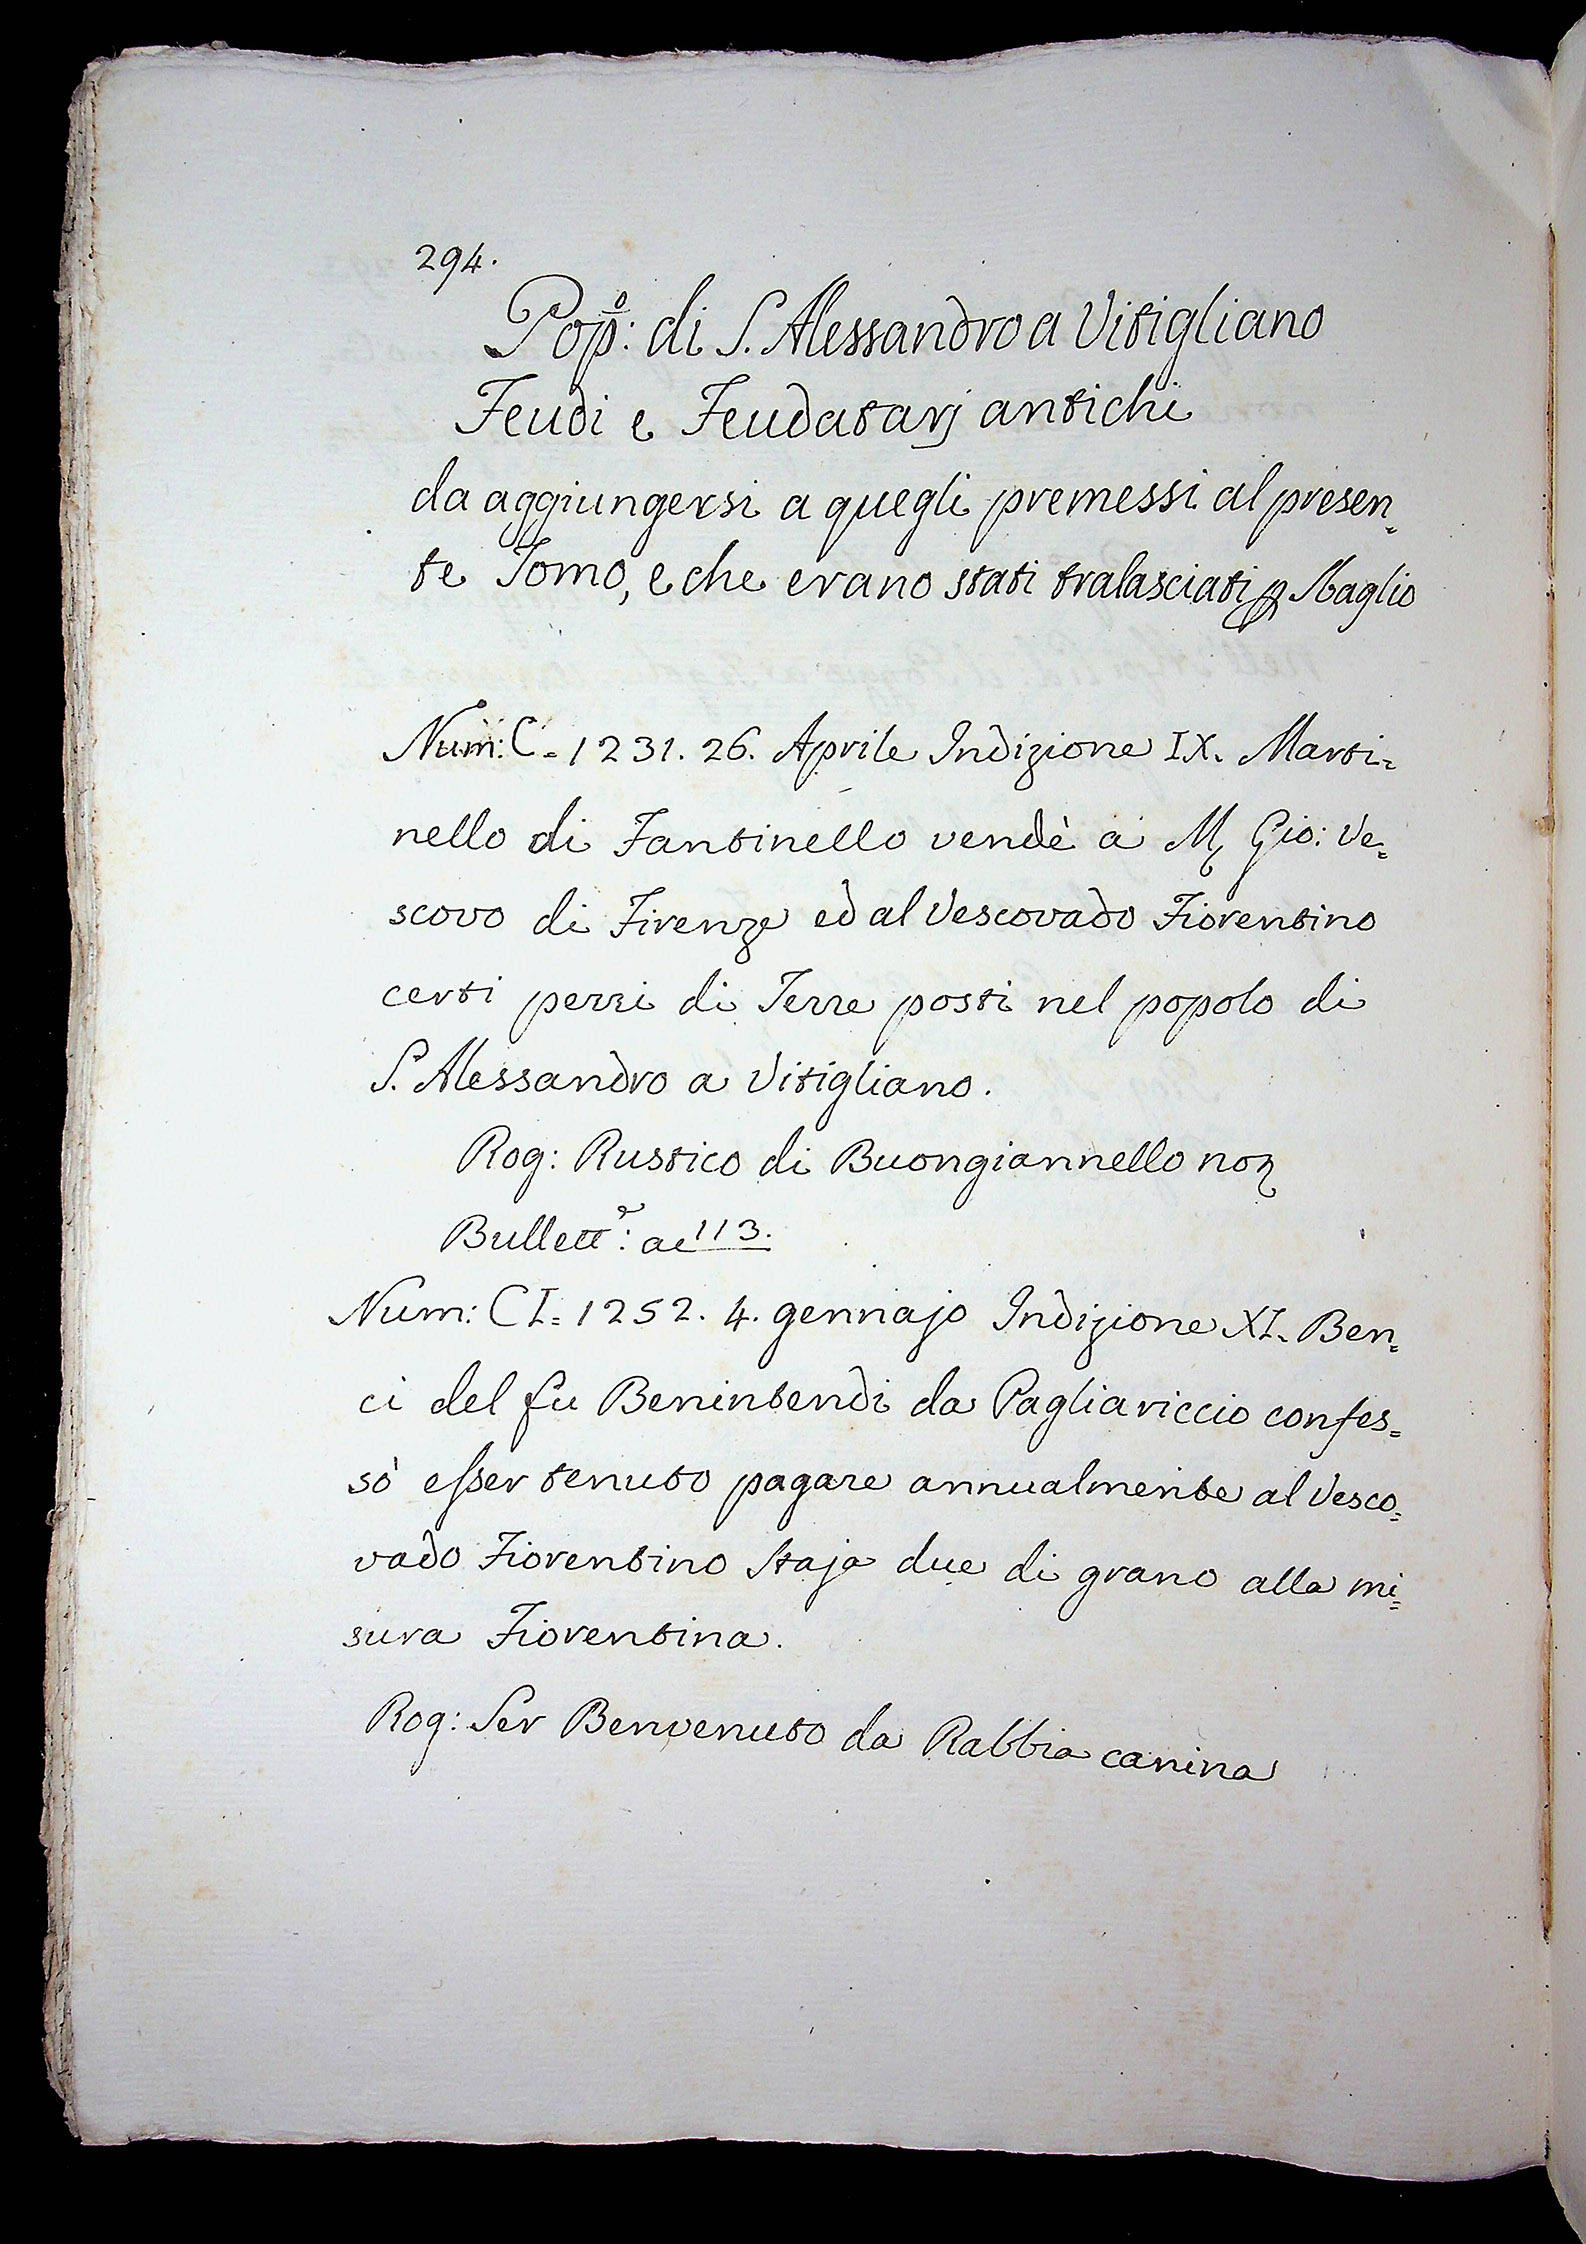 294.
Pop:º di S. Alessandro a Vitigliano
Feudi e Feudatarj antichi
da aggiungersi a quegli premessi al presen=
te Tomo, e che erano stati tralasciati p Sbaglio
Num: C = 1231. 26. Aprile Indizione IX. Marti=
nello di Fantinello vendè a M. Gio: Ve=
scovo di Firenze ed al Vescovado Fiorentino
certi pezzi di Terre posti nel popolo di
S. Alessandro a Vitigliano.
Rog: Rustico di Buongiannello no
Bullett:e ac 113.
Num: CI = 1252. 4. gennajo Indizione XI. Ben=
ci del fu Benintendi da Pagliariccio confes=
sò esser tenuto pagare annualmente al Vesco=
vado Fiorentino Staja due di grano alla mi=
sura Fiorentina.
Rog: Ser Benvenuto da Rabbia canina